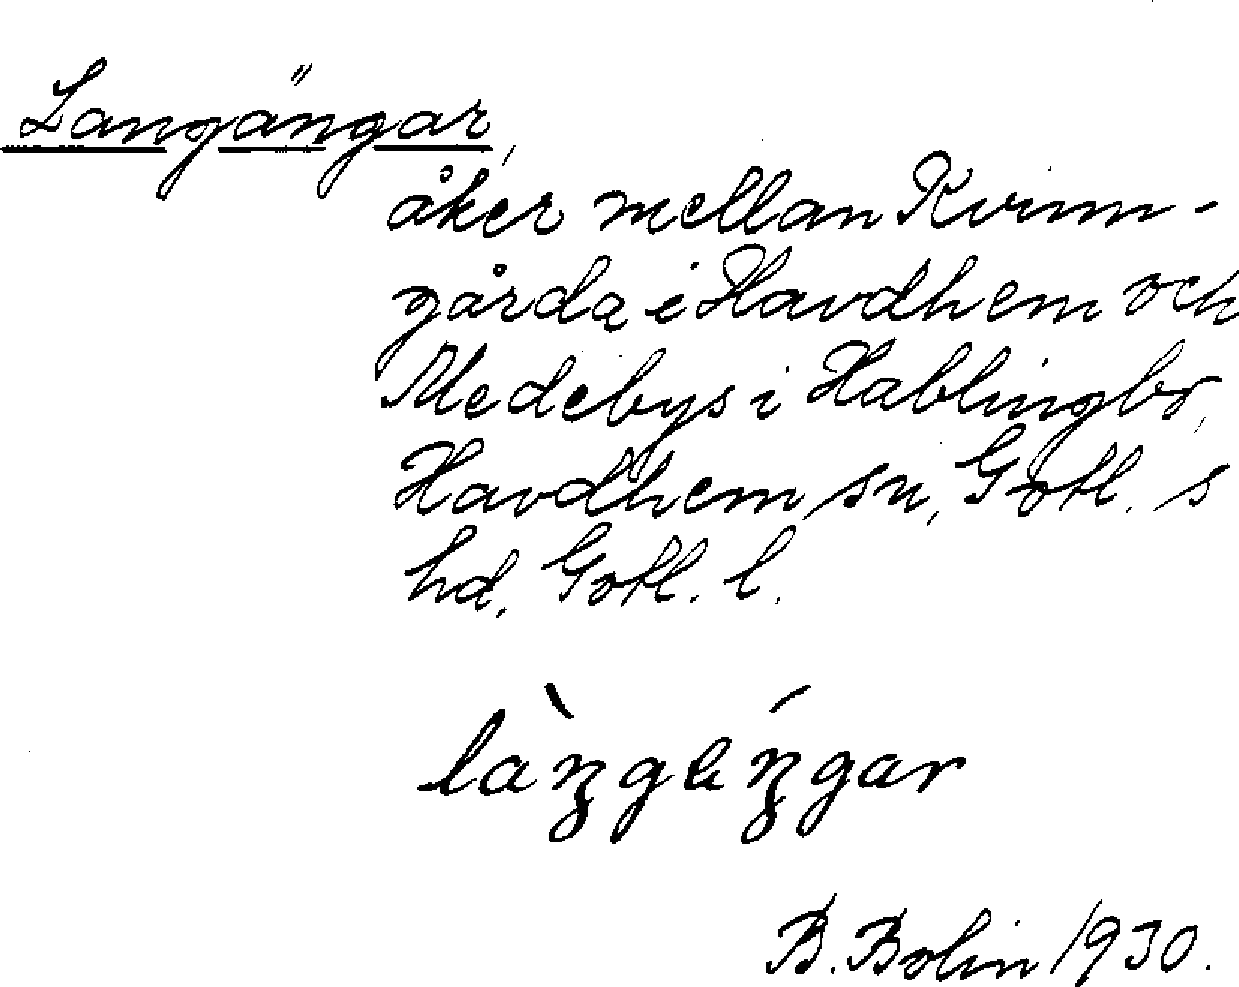 Langängar,
åker mellan Kvinn-
gårda i Havdhem och
Medebys i Hablingbo,
Havdhem sn, Gotl. s
hd, Gotl. l.
là̀ŋgäŋ́gar
B. Bolin 1930.